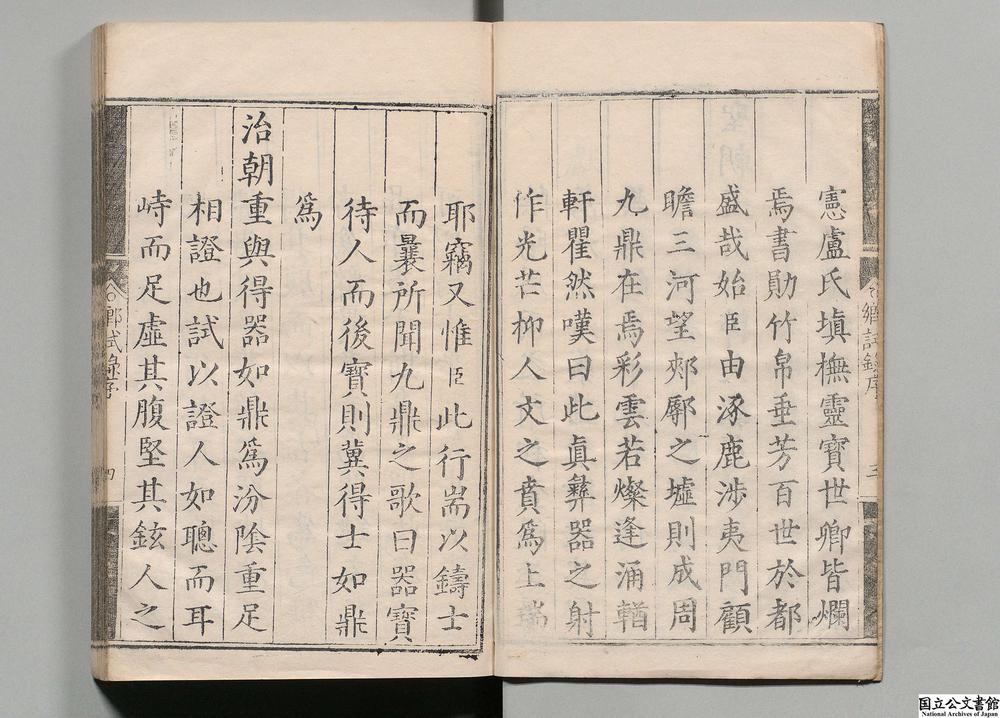 憲盧氏塡橅靈寶世卿皆爛
焉書勛竹帛垂芳百世於都
盛哉始臣由涿鹿涉夷門顧
瞻三河望郟鄏之墟則成周
九鼎在焉彩雲若燦逢涌輶
軒瞿然嘆曰此眞彝器之射
作光芒抑人文之賁爲上瑞
耶竊又惟臣此行耑以鑄士
而曩所聞九鼎之歌曰器寶
待人而後寶則冀得士如鼎
爲
治朝重與得器如鼎爲汾陰重足
相證也試以證人如聰而耳
峙而足虛其腹堅其鉉人之
鄉試錄序
三
鄉試錄序
四
国立公文書館
National Archives of Japan